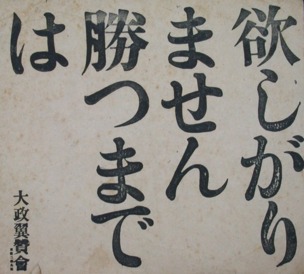 欲しがり
ません
勝つまで
は
大政翼賛會